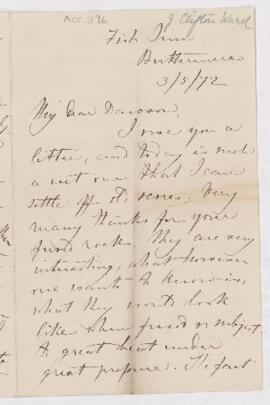 ACC.976
J. Clifton Ward
Fish Inn
Buttermere
3/5/72
My dear Dawson,
I owe you a
letter, and today is such
a wet one that I can
settle off old scores. Very
many thanks for your
fused rocks. They are very
interesting, what however
one wants to know is,
what they would look
like when fused or subject
to great heat under
great pressure. The fact